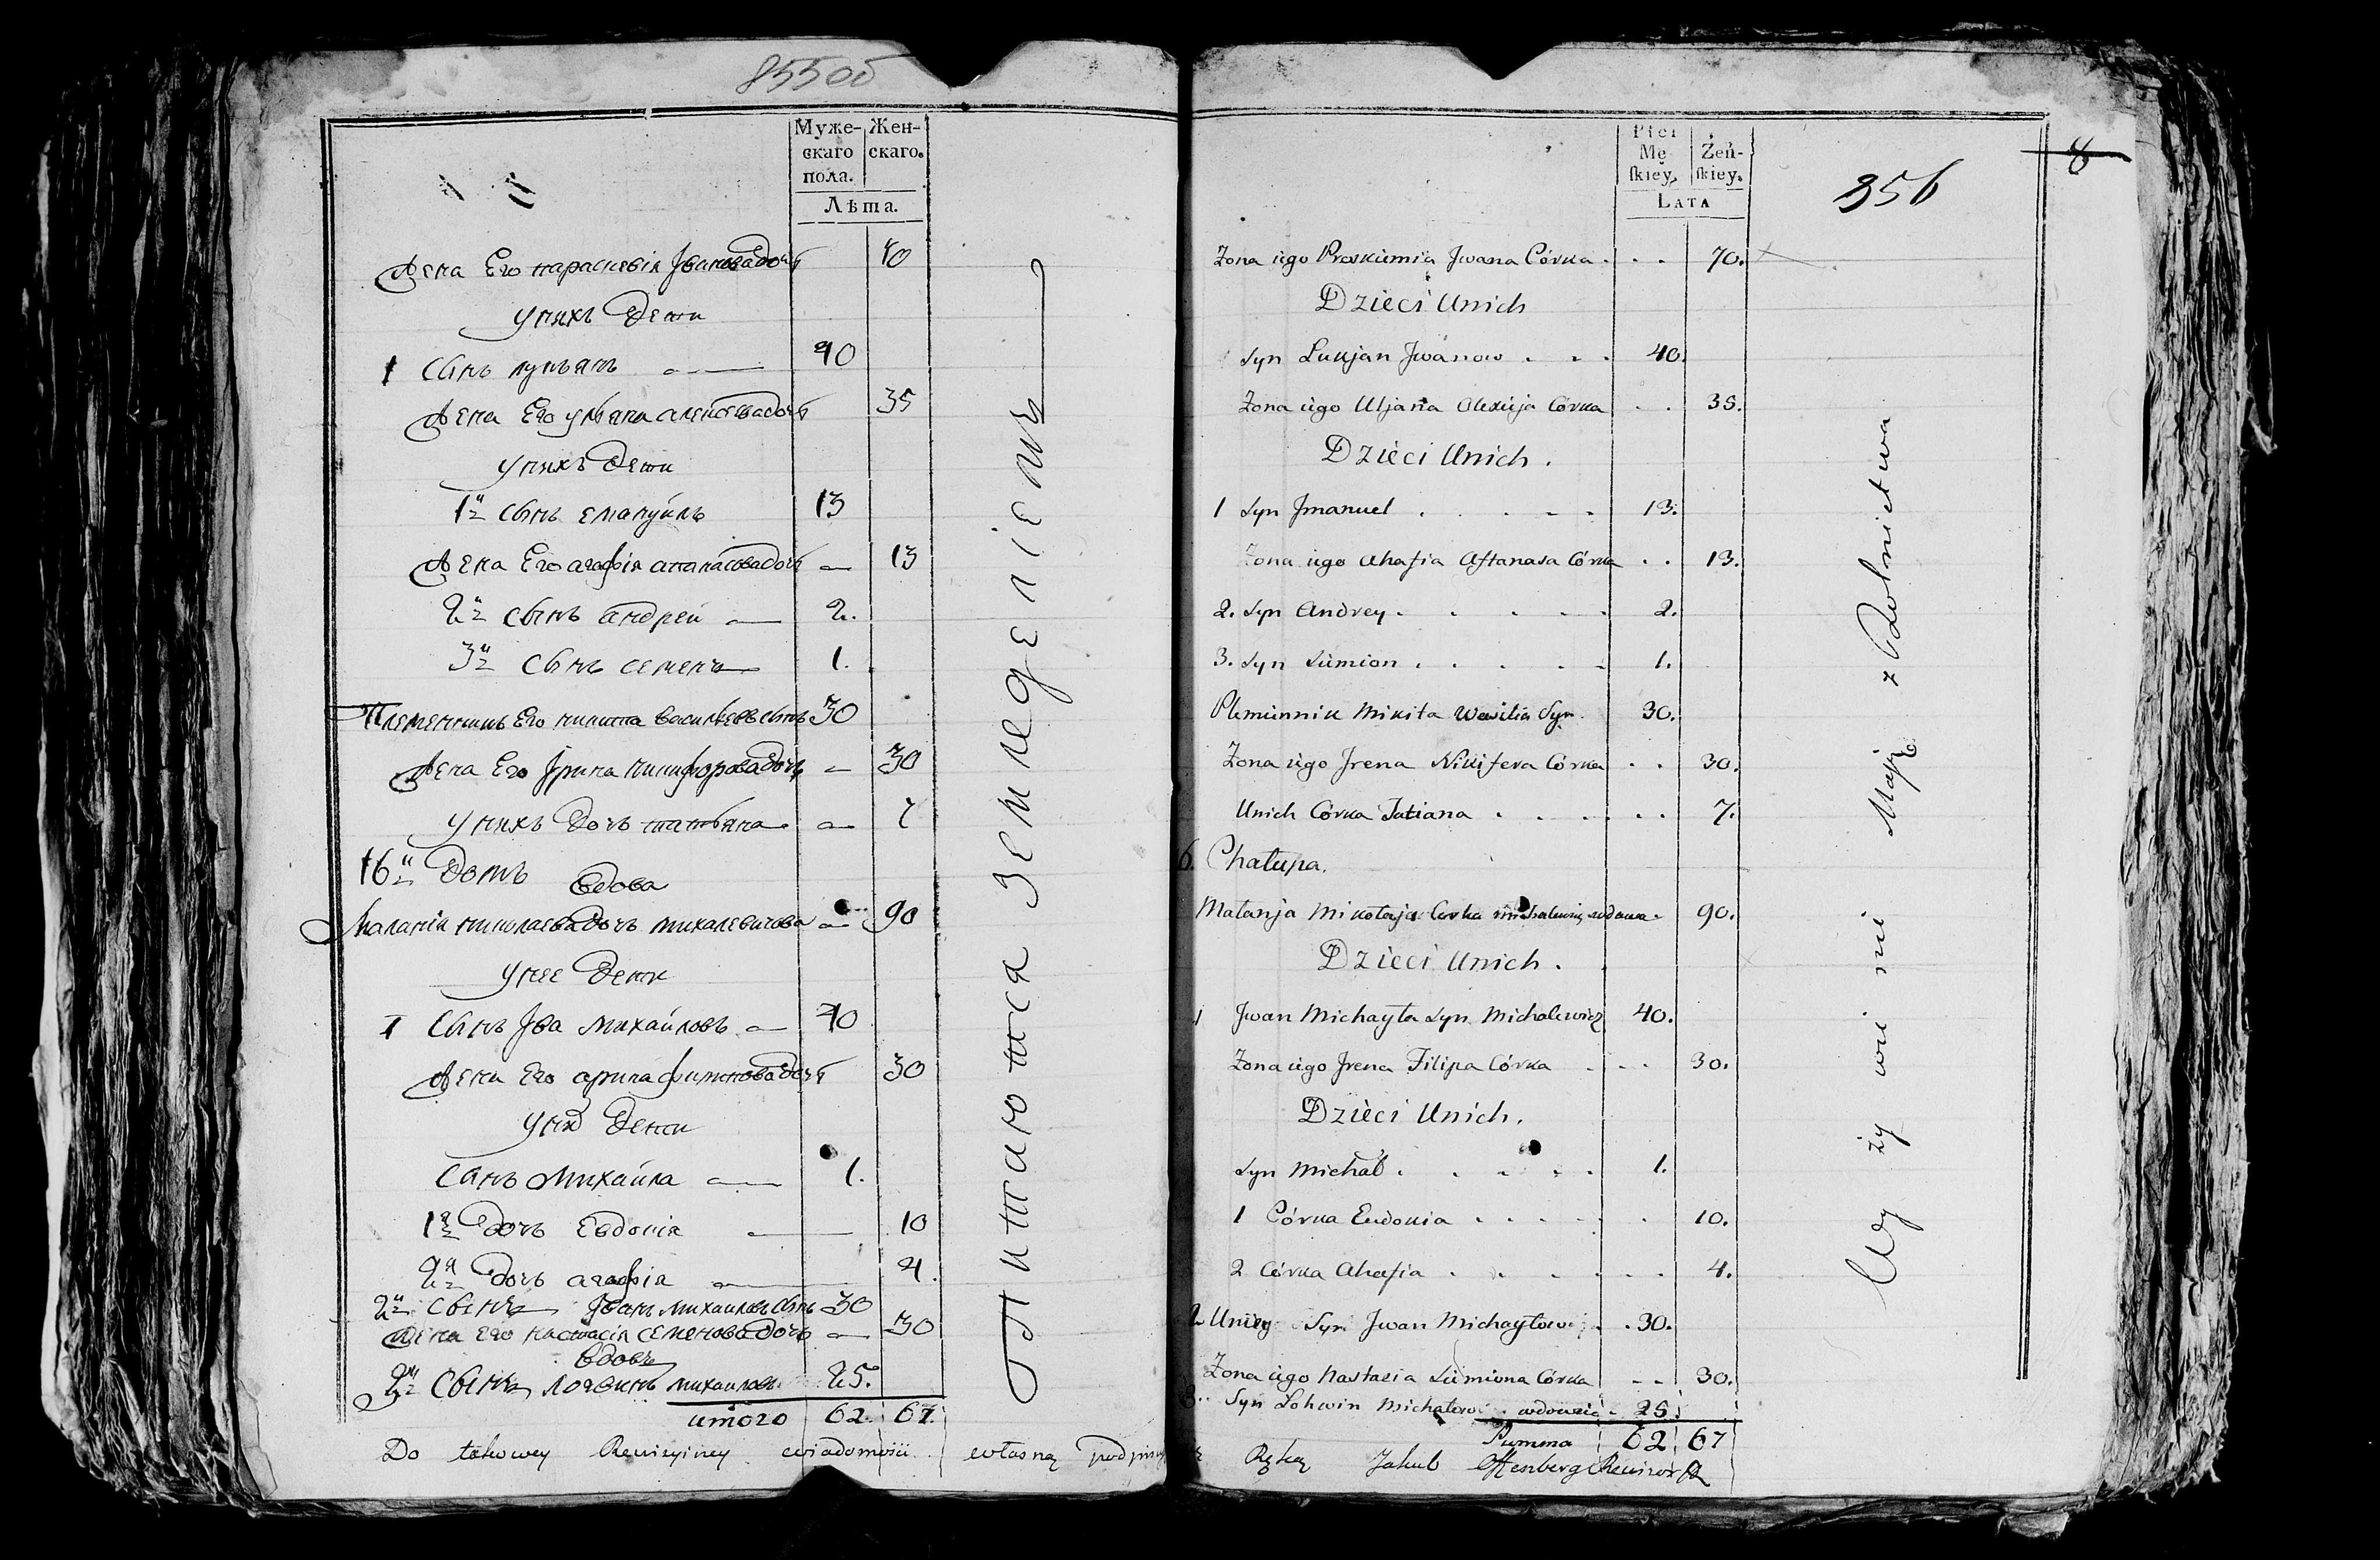 855об
Муже-
скаго
пола.
Жен-
скаго.
Лѣта.
Жена Его параскевiя Јвановадочь 70
у нихъ Дети
1 сынъ лукьянъ 40
Жена Его ульяна алексеевадочь 35
у нихъ Дети
1й сынъ емануилъ 13
Жена Его агафiя атанасовадочь 13
2й сынъ андрей 2.
3й сынъ семенъ 1.
Племенникъ Его никита васильевъ сынъ 30
Жена Его Јрина никифоровадочь 30
у нихъ Дочь татьяна 7
16й Домъ
вдова
Маланiя николаевадочь михалевичова 90
у нее Дети
1 сынъ Јва михайловъ 40
Жена Его арина филиповадочь 30
у них Дети
сынъ михайла 1.
1я Дочь евдокiя 10
2я дочь агафiя 4.
2й сынъ Јванъ михайловъ сынъ 30
жена его настасiя семеновадочь 30
вдовъ
3й сынъ логвинъ михайловъ 25.
итого 62. 67.
Питаются земледелiемъ
Do takowey Rewizyiney wiadomości własną podpisuję Ręką Jakub Offenberg Rewizor
Płci
Mę-
skiey.
Żeń-
skiey.
LATA
856
8
Żona iego Proskiewia Jwana Córka . . . 70.
Dzieci Unich
Syn Łukjan Jwanow . . . 40.
Żona iego Uljana Olexieja Córka . . 35.
Dzieci Unich.
1 Syn Jmanuel . . . . . 13.
Żona iego Ahafia Aftanasa Córka . . 13.
2. Syn Andrey . . . . . 2.
3. Syn Siemion . . . . . 1.
Plemiennik Mikita Wasilia Syn. 30.
Żona iego Jrena Nikifera Córka . . 30.
Unich Córka Tatiana . . . . . . 7.
6. Chałupa.
Małanja Mikołaja Corka michalewicz wdowa . 90.
Dzieci Unich.
1 Jwan Michayła Syn Michalewicz 40.
Żona iego Jrena Filipa Córka . . . 30.
Dzieci Unich.
Syn Michał . . . . . 1.
1 Córka Eudokia . . . . . . 10.
2 Córka Ahafia . . . . . . . 4.
2 Uniey Syn Jwan Michayłowicz . . 30.
Żona iego Nastazia Siemiona Córka . . 30.
3 Syn Lohwin Michałowi wdowiec . 25.
Summa 62 67
Wy ży wie nie Mają z Rolnictwa